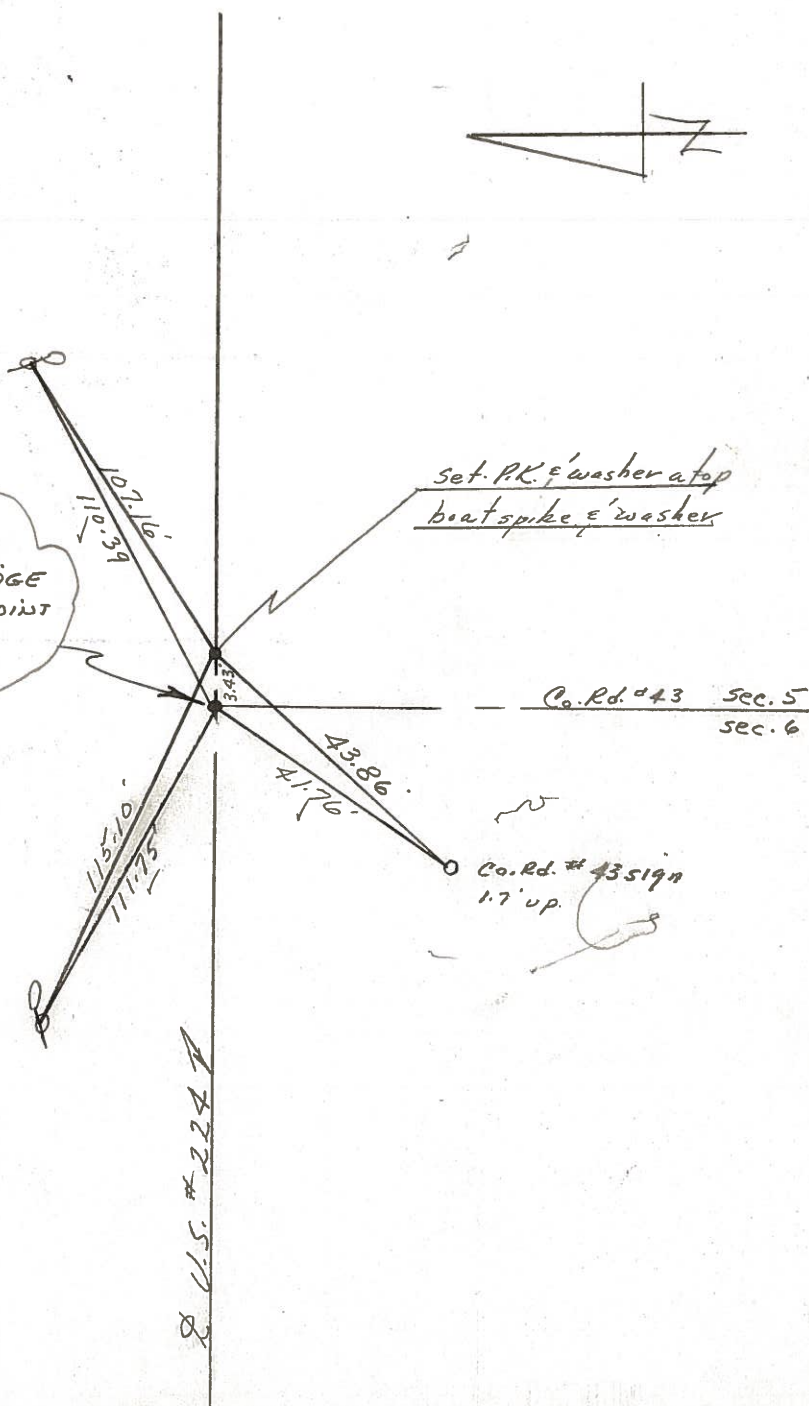 N
107.16'
110.39
set. P.K. & washer atop
boat spike & washer
OINT
3.43'
Co. Rd. #43 sec. 5
sec. 6
43.86'
41.76'
115.10'
111.75'
Co. Rd. #43 sign
1.7' up.
U.S. #224